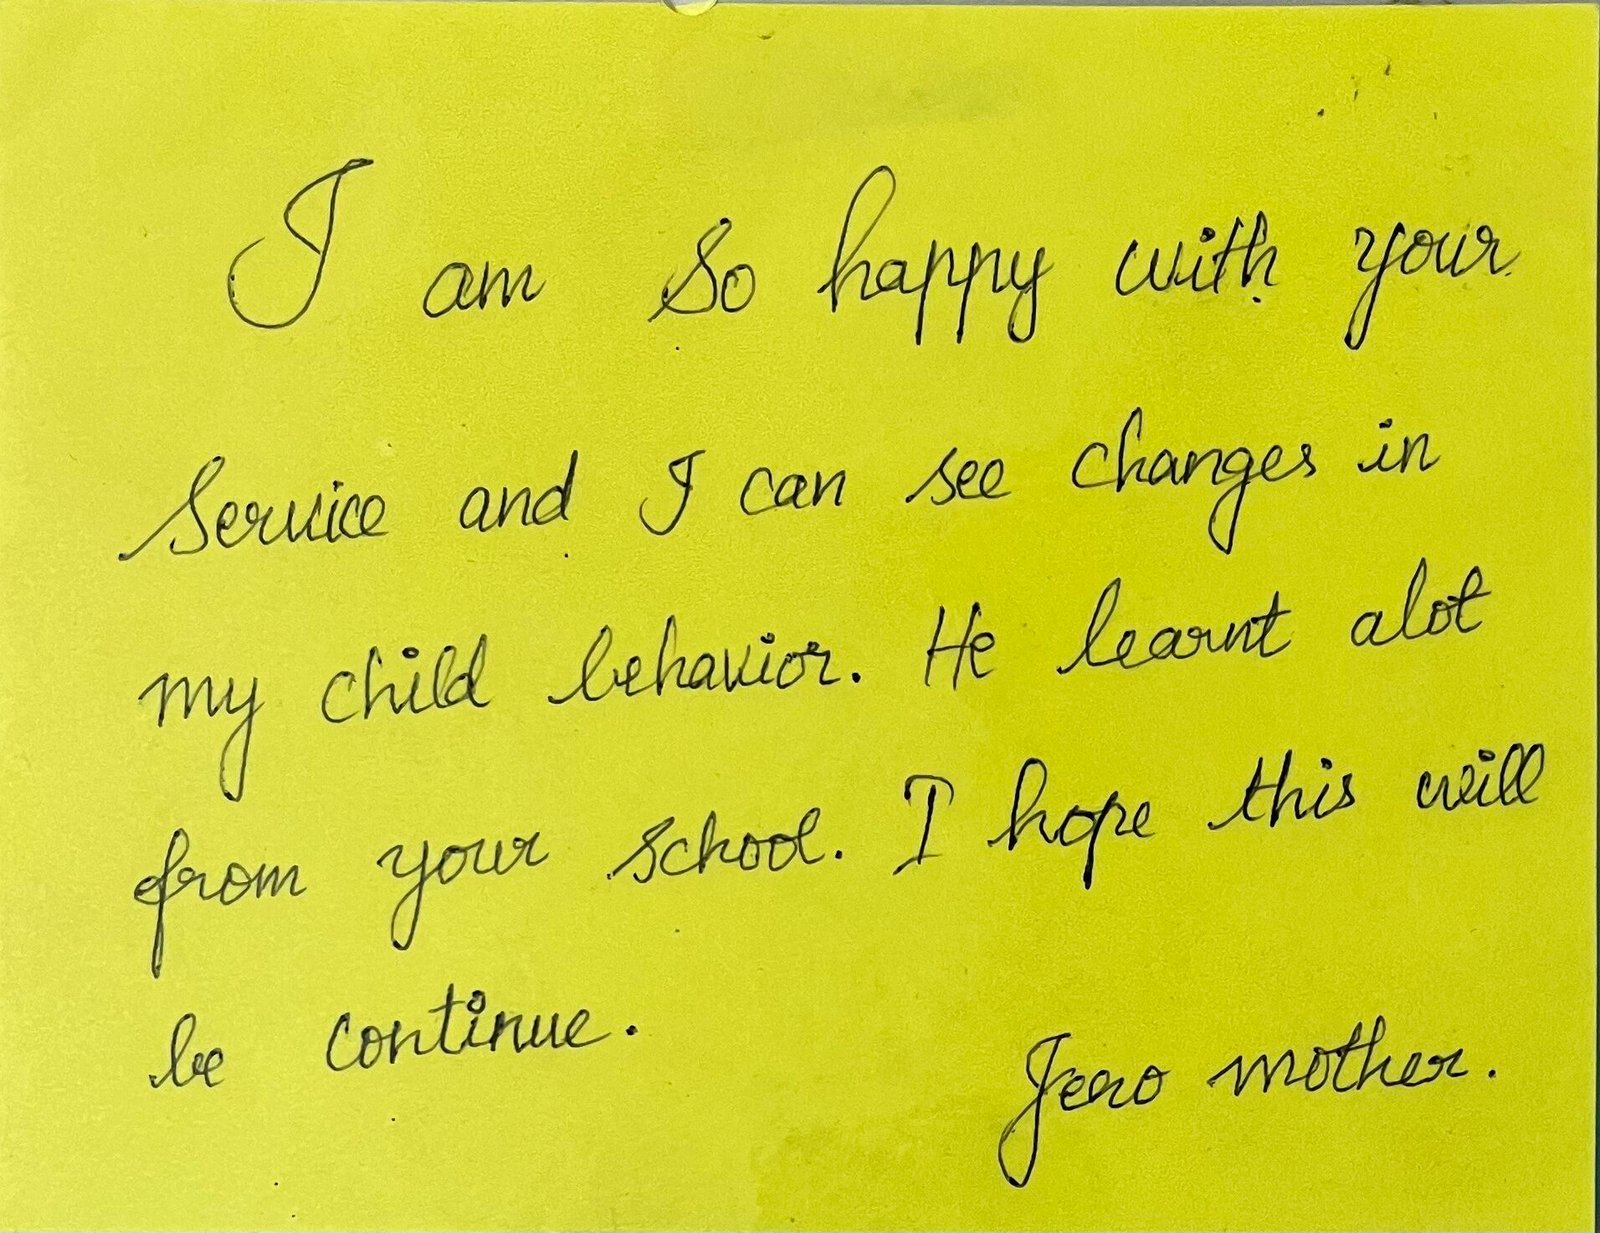 I am so happy with your
service and I can see changes in
my child behavior. He learnt alot
from your school. I hope this will
be continue.
Jero mother.